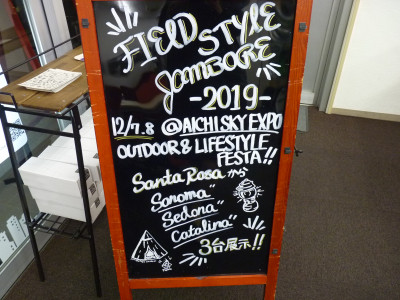 FIELD
STYLE
JAMBORE
-2019-
12/7.8 @AICHI SKY EXPO
OUTDOOR & LIFESTYLE
FESTA!!
Santa Rosa から
Sonoma"
Sedona"
Catalina"
3台展示!!